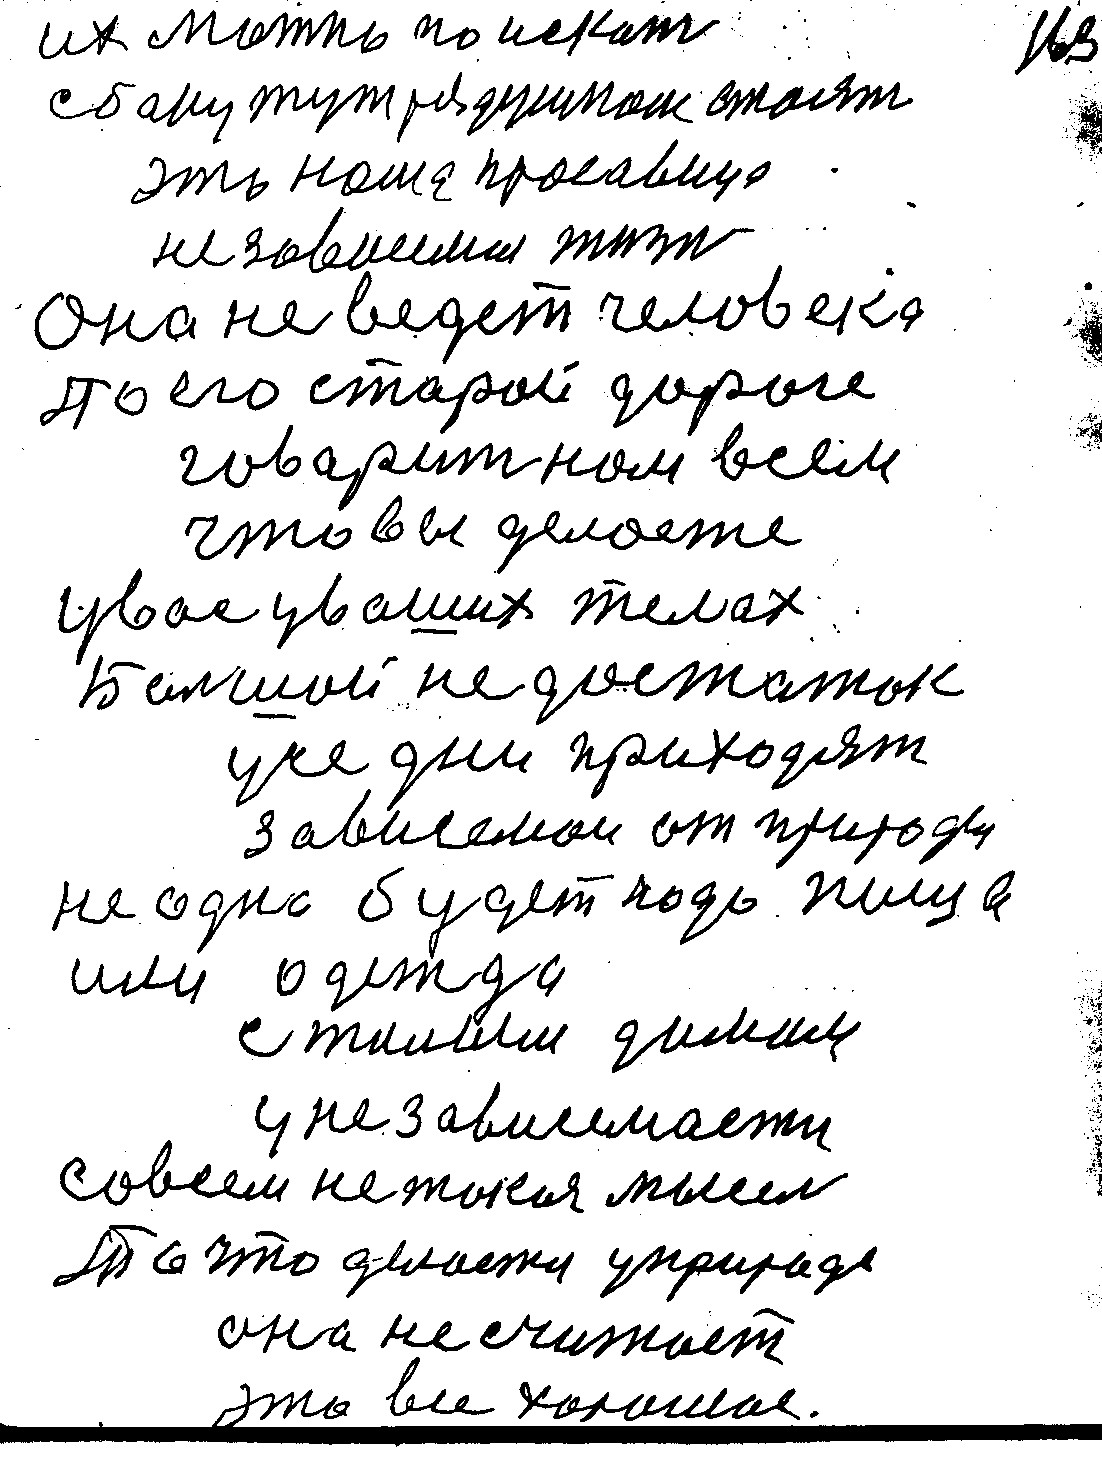 их можно поискат 163
сбаку тут рядушком стоят
эть наша красавица
независемая жизн
Она не ведет человека
По его старой дороге
говарит нам всем
что вы делаете
увас уваших телах
Балшой недостаток
уже дни приходят
зависемаи от природы
не одна будет чодь пища
или одежда
сталым домам
унезависемасти
совсем не такая мысел
То что делается уприроде
она не считает
это все хорошае.